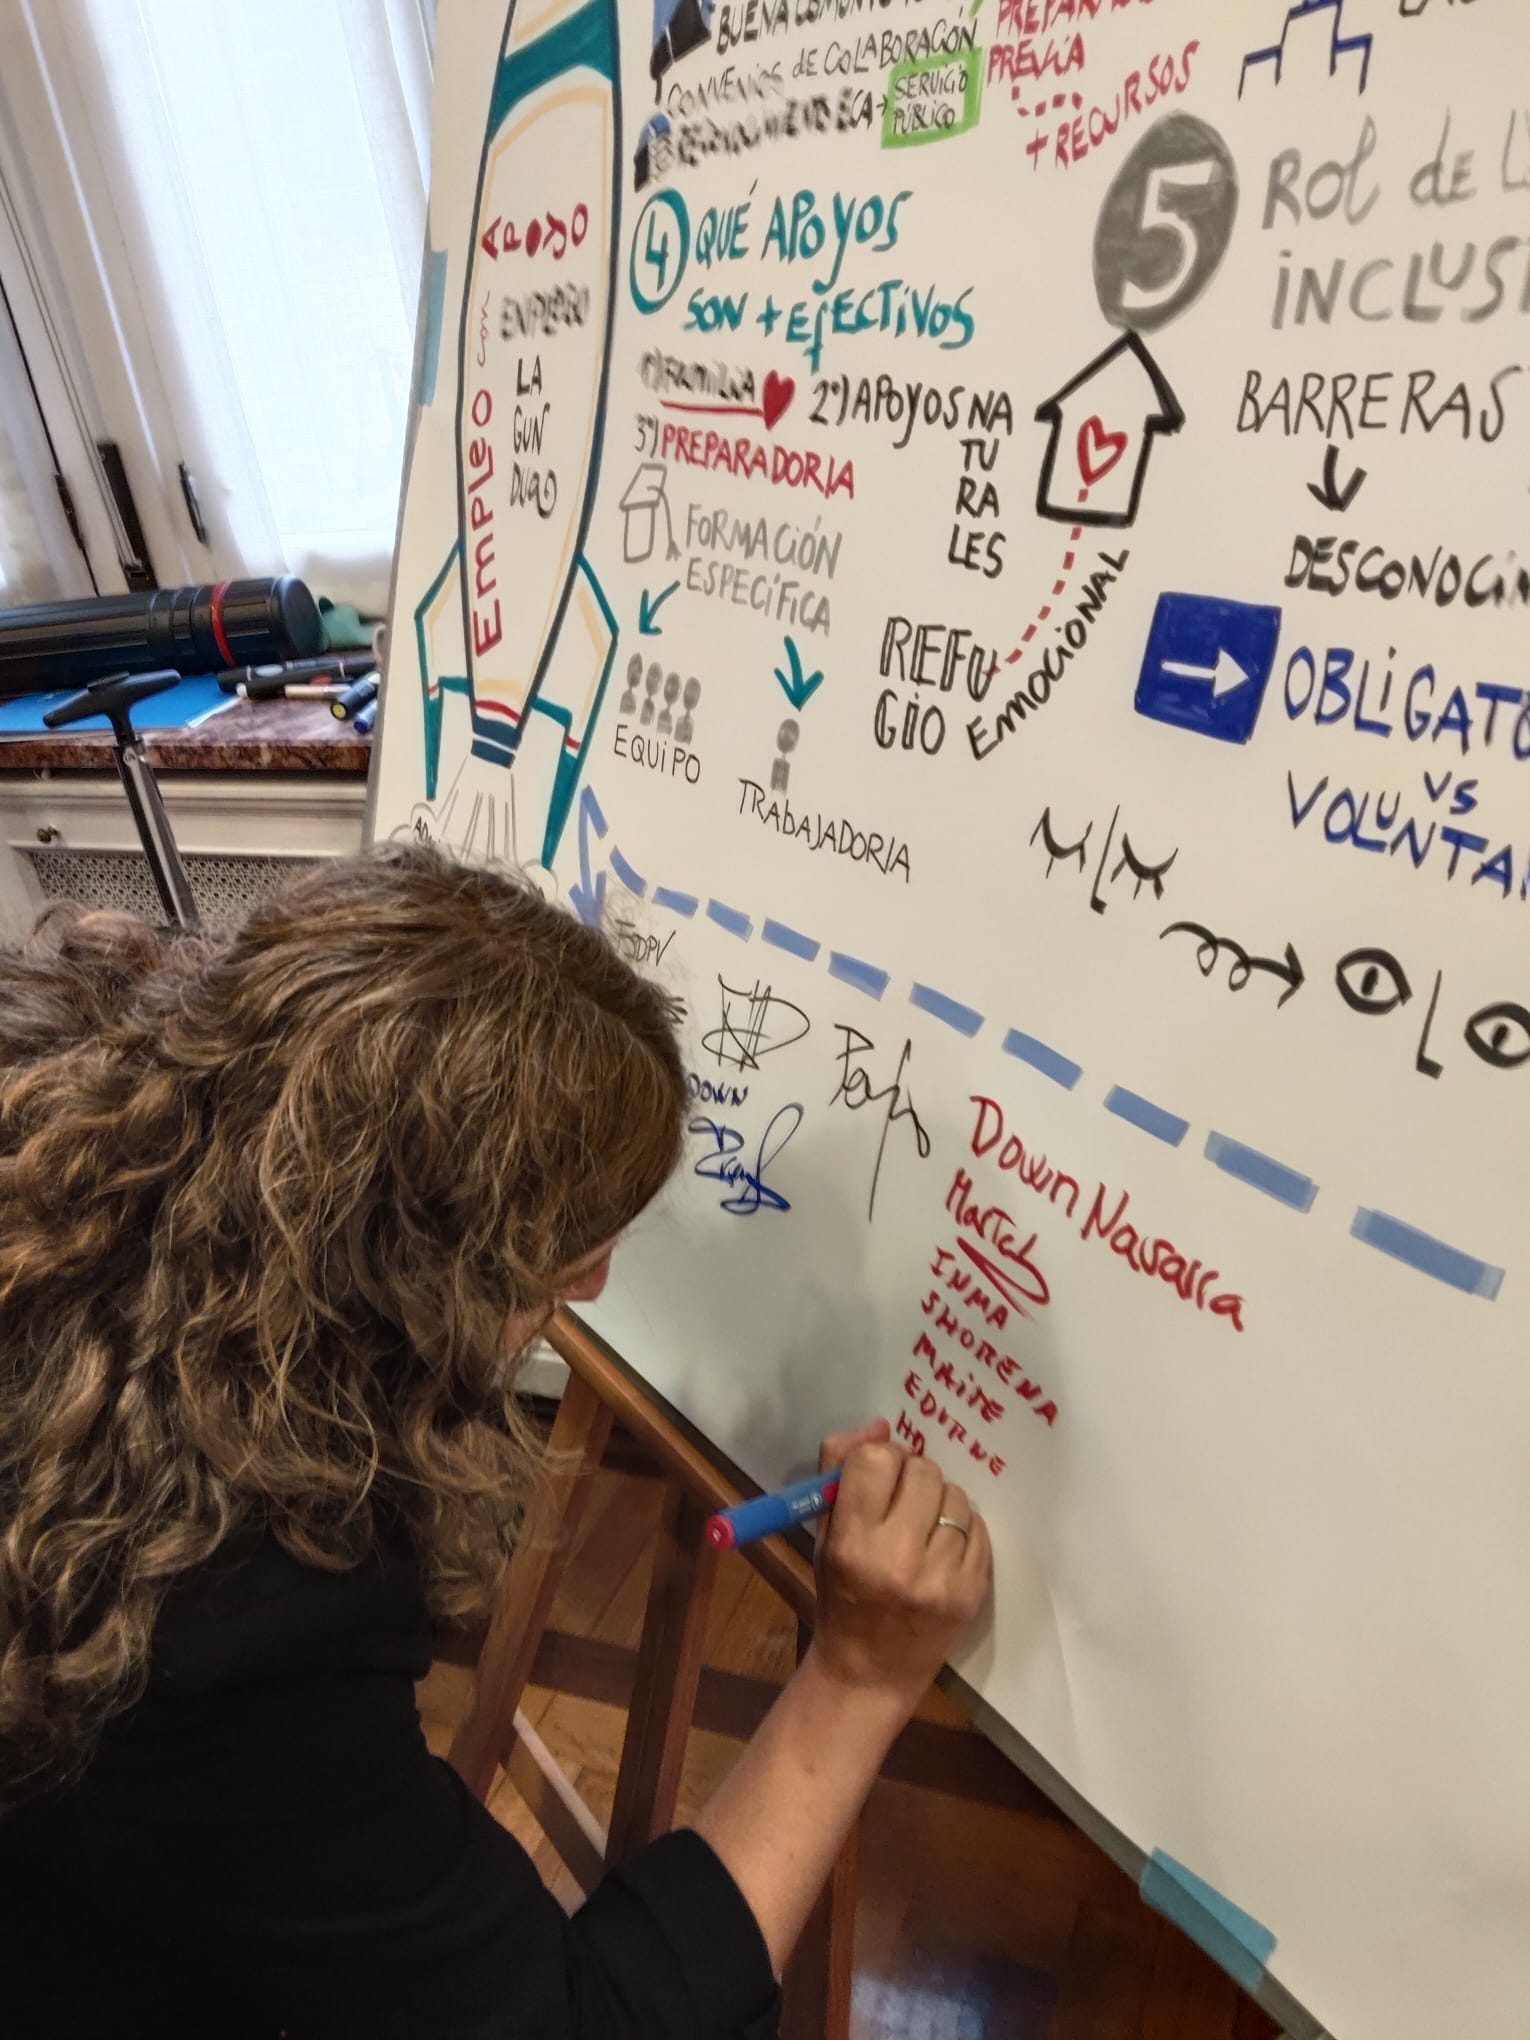 BUENA
CONVENIOS de COLABORACIÓN
SERVICIO
PÚBLICO
PREVIA
+ RECURSOS
EMPLEO con APOYO
LA
GUN
DUA
4 QUÉ APOYOS
SON + EFECTIVOS
1º) FAMILIA 2º) APOYOS NA
TU
RA
LES
3º) PREPARADOR/A
FORMACIÓN
ESPECÍFICA
EQUIPO
TRABAJADOR/A
REFU
GIO
EMOCIONAL
5 ROL de
INCLUSI
BARRERAS
DESCONOCIM
OBLIGATO
VS
VOLUNTA
FSDPV
DOWN
Down Navarra
INMA
SHORENA
MAITE
EDURNE